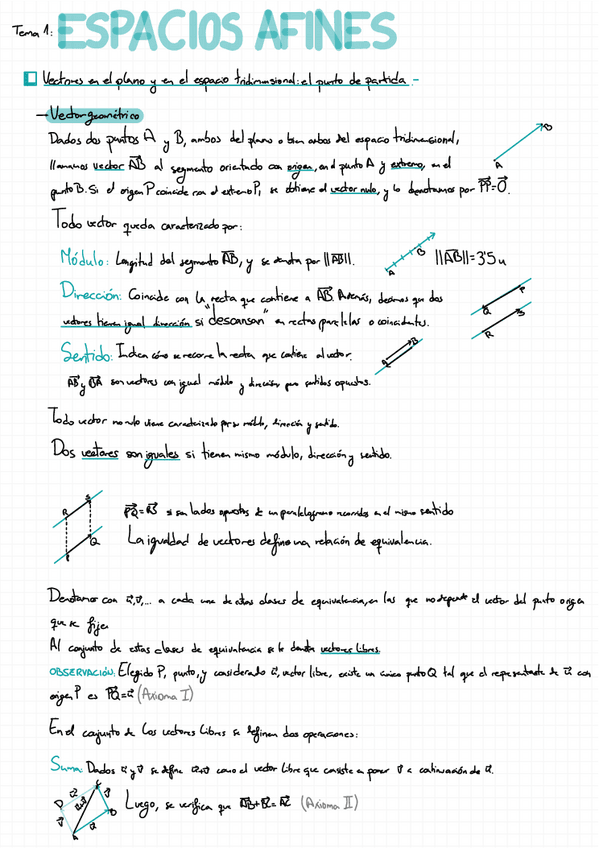 Tema 1: ESPACIOS AFINES
Vectores en el plano y en el espacio tridimensional: el punto de partida.-
→ Vector geométrico
Dados dos puntos A y B, ambos del plano o bien ambos del espacio tridimensional,
llamamos vector AB al segmento orientado con origen, en el punto A y extremo, en el
punto B. Si el origen P coincide con el extremo P, se obtiene el vector nulo, y lo denotamos por PP=O.
A
B
Todo vector queda caracterizado por:
Módulo: Longitud del segmento AB, y se denota por ||AB||.
A
B
||AB||=3'5u
Dirección: Coincide con la recta que contiene a AB. Además, decimos que dos
vectores tienen igual dirección si "descansan" en rectas paralelas o coincidentes.
Q
P
R
S
Sentido: Indica cómo se recorre la recta que contiene al vector.
A
B
AB y BA son vectores con igual módulo y dirección pero sentidos opuestos.
Todo vector no nulo viene caracterizado por su módulo, dirección y sentido.
Dos vectores son iguales si tienen mismo módulo, dirección y sentido.
R
S
P
Q
PQ=RS si son lados opuestos de un paralelogramo recorridos en el mismo sentido
La igualdad de vectores define una relación de equivalencia.
Denotamos con u,v,... a cada una de estas clases de equivalencia, en las que no depende el vector del punto origen
que se fije.
Al conjunto de estas clases de equivalencia se le denota vectores libres.
OBSERVACIÓN: Elegido P, punto, y considerado u, vector libre, existe un único punto Q tal que el representante de u con
origen P es PQ=u (Axioma I)
En el conjunto de los vectores libres se definen dos operaciones:
Suma: Dados u y v se define u+v como el vector libre que consiste en poner v a continuación de u.
D
u
C
v
u+v
v
A
u
B
Luego, se verifica que AB+BC=AC (Axioma II)